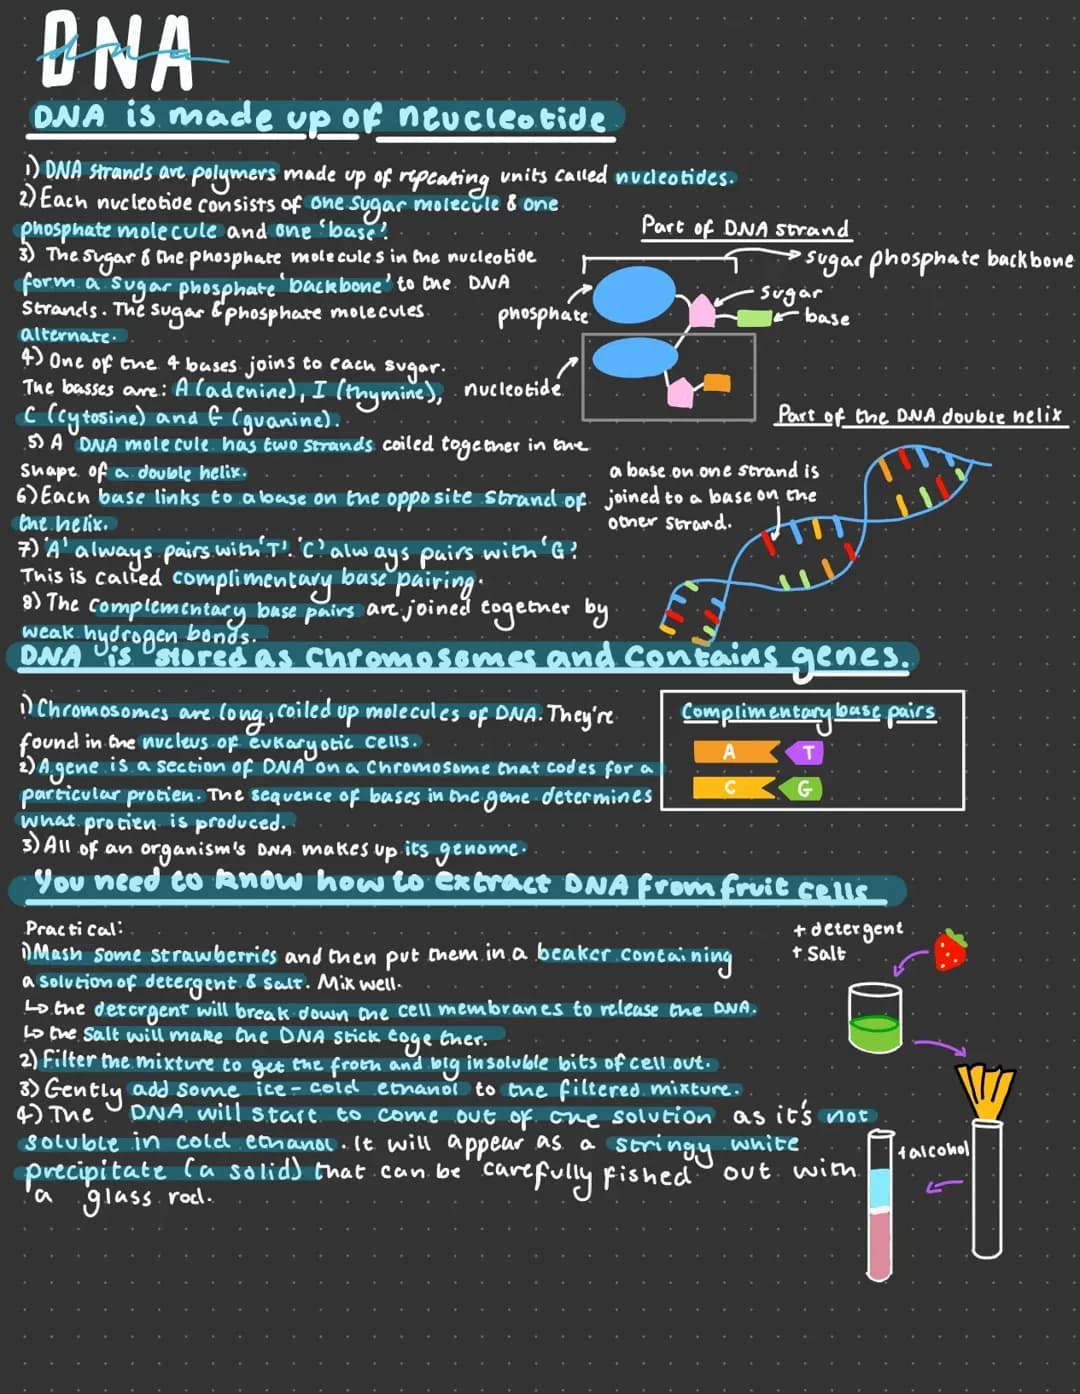 DNA
dna
DNA is made up of neucleotide
1) DNA strands are polymers made up of repeating units called nucleotides.
2) Each nucleotide consists of one sugar molecule & one
phosphate molecule and one 'base'.
3) The sugar & the phosphate molecules in the nucleotide
form a sugar phosphate 'backbone' to the DNA
Strands. The sugar & phosphate molecules
alternate.
4) One of the 4 bases joins to each sugar.
The basses are: A (adenine), T (thymine),
C (cytosine) and G (guanine).
5) A DNA molecule has two strands coiled together in the
shape of a double helix.
6) Each base links to a base on the opposite strand of
the helix.
7) 'A' always pairs with 'T'. 'C' always pairs with 'G'.
This is called complimentary base pairing.
8) The complementary base pairs are joined together by
weak hydrogen bonds.
Part of DNA strand
sugar phosphate backbone
sugar
phosphate
base
nucleotide
Part of the DNA double helix
a base on one strand is
joined to a base on the
other strand.
DNA is stored as chromosomes and contains genes.
1) Chromosomes are long, coiled up molecules of DNA. They're
found in the nucleus of eukaryotic cells.
2) A gene is a section of DNA on a chromosome that codes for a
particular protien. The sequence of bases in the gene determines
what protien is produced.
3) All of an organism's DNA makes up its genome.
Complimentary base pairs
A T
C G
You need to know how to extract DNA from fruit cells
Practical:
1) Mash some strawberries and then put them in a beaker containing
a solution of detergent & salt. Mix well.
↳ the detergent will break down the cell membranes to release the DNA.
↳ the salt will make the DNA stick together.
2) Filter the mixture to get the froth and big insoluble bits of cell out.
3) Gently add some ice-cold ethanol to the filtered mixture.
4) The DNA will start to come out of the solution as it's not
soluble in cold ethanol. It will appear as a stringy white
precipitate (a solid) that can be carefully fished out with
a glass rod.
+ detergent
+ Salt
+ alcohol